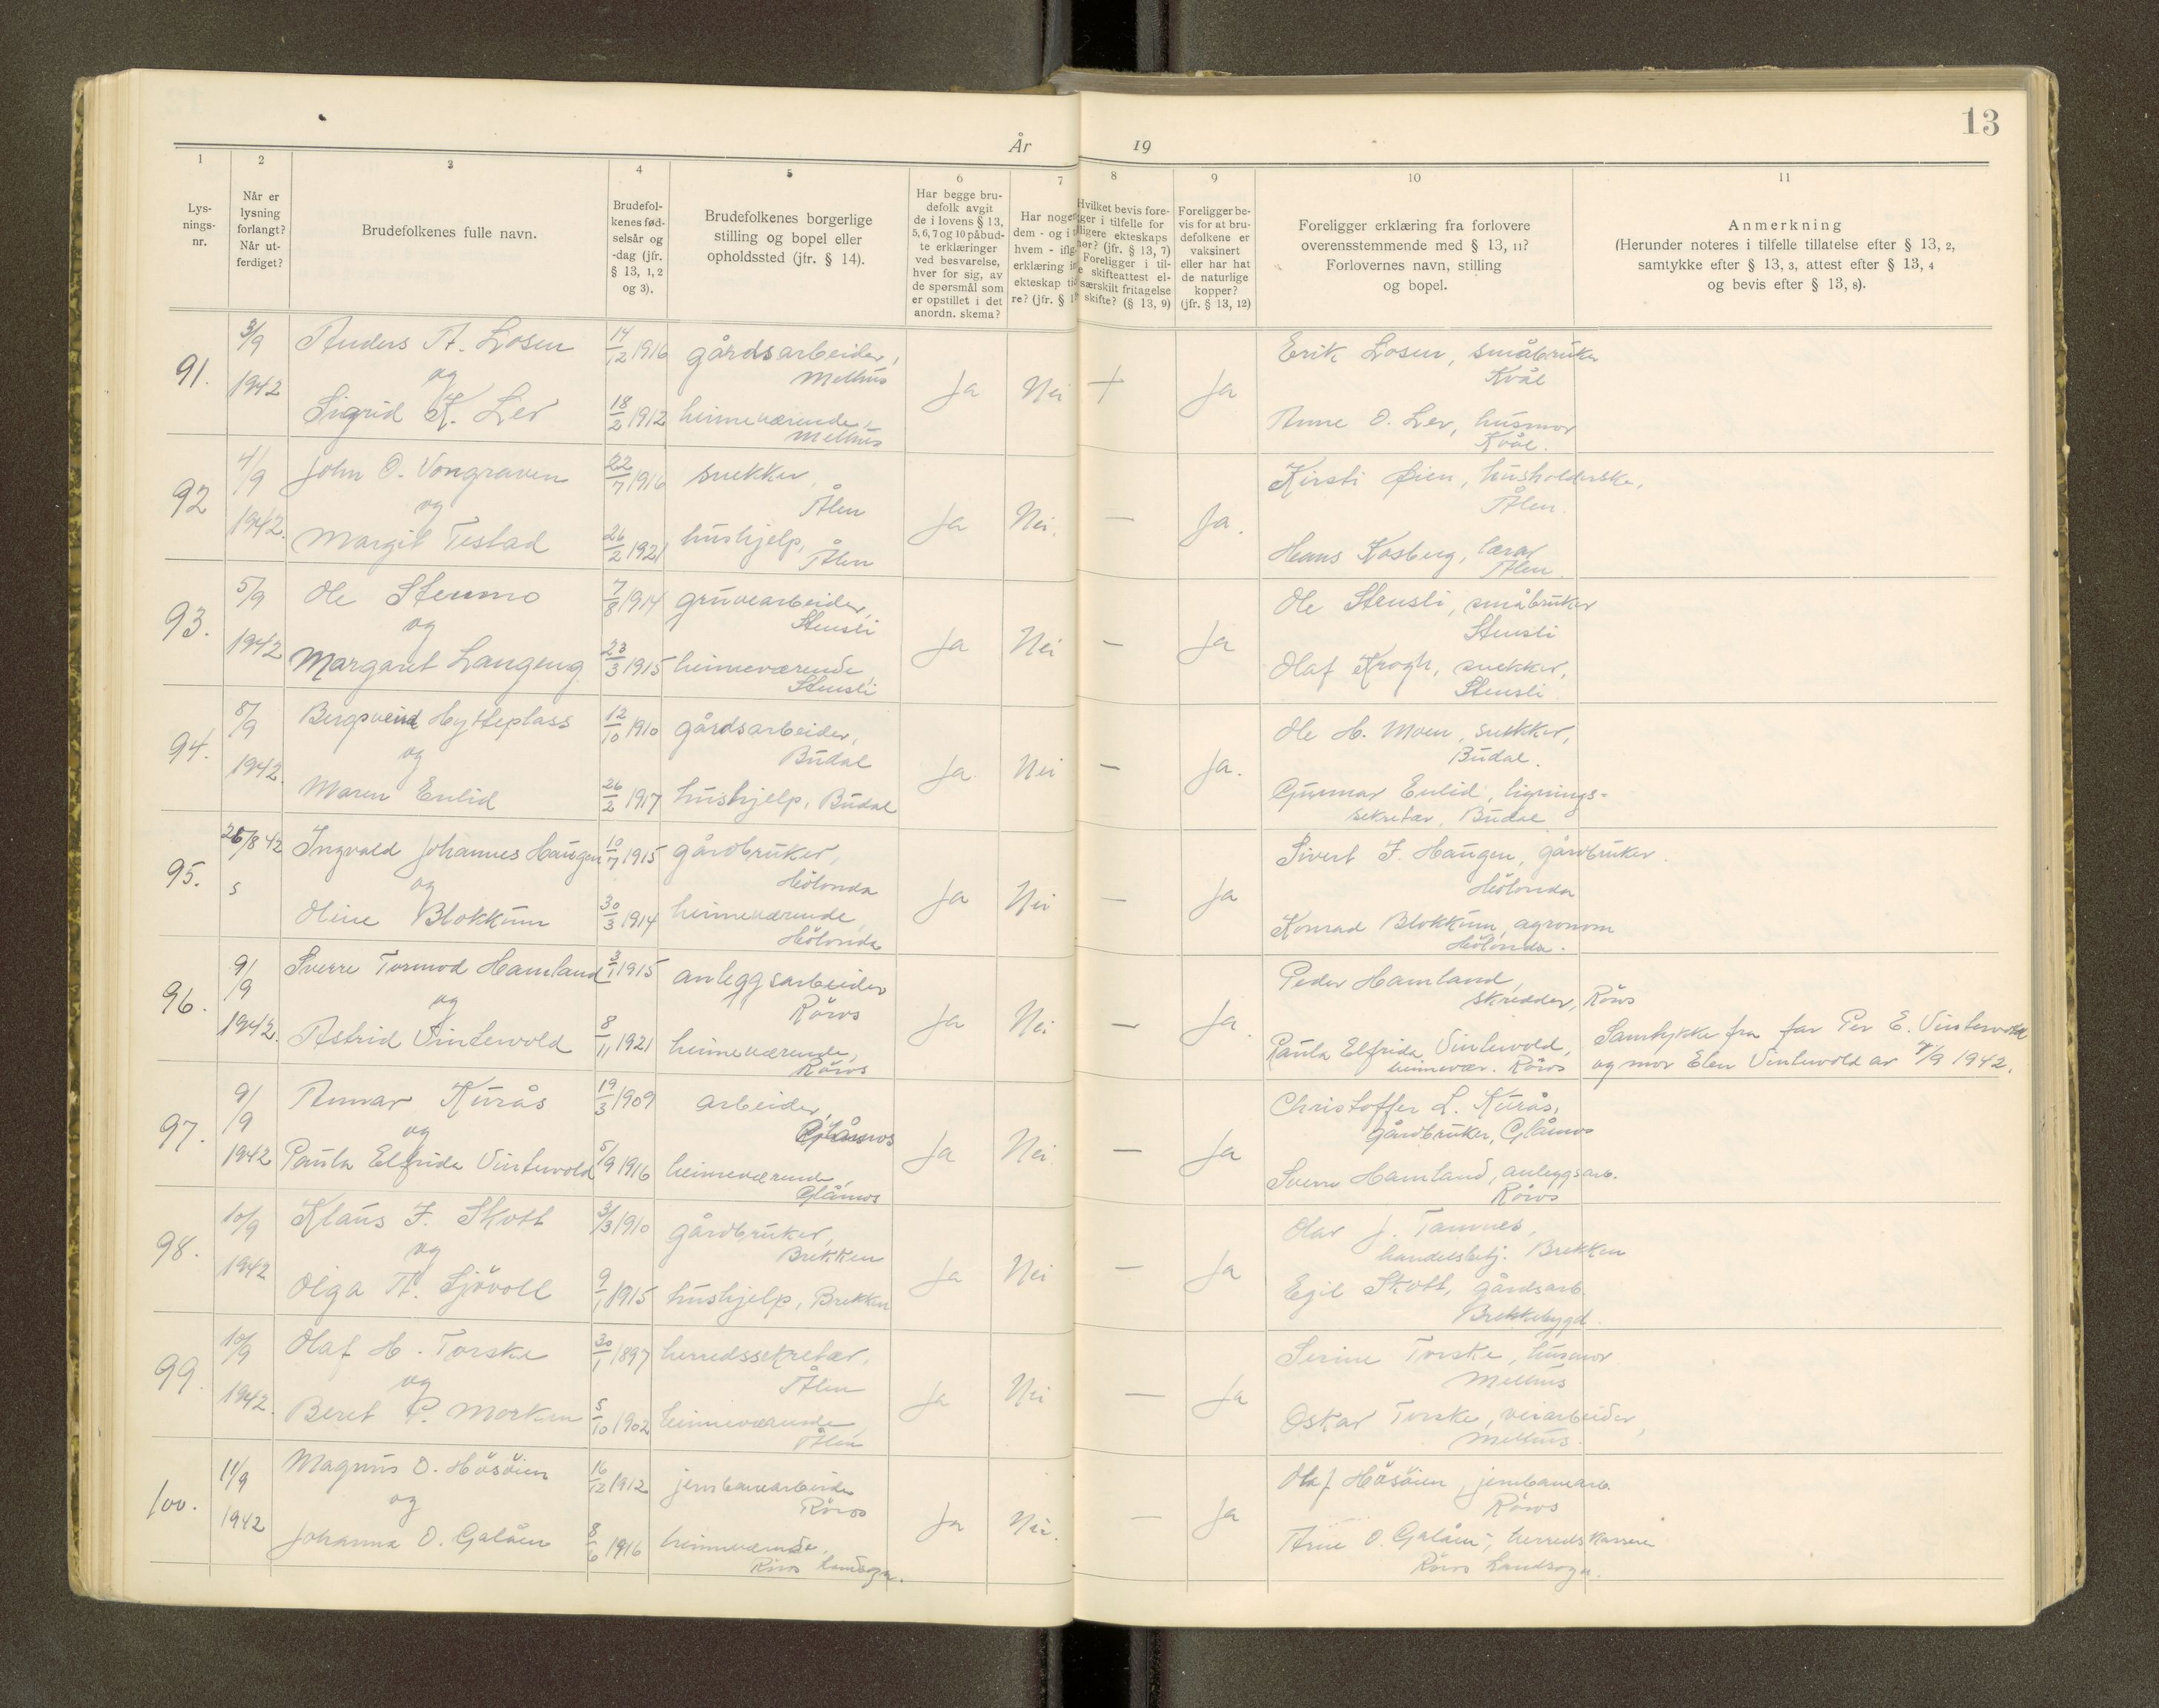 13
År 19
1
Lys-
nings-
nr.
2
Når er
lysning
forlangt?
Når ut-
ferdiget?
3
Brudefolkenes fulle navn.
4
Brudefol-
kenes fød-
selsår og
-dag (jfr.
§ 13, 1, 2
og 3).
5
Brudefolkenes borgerlige
stilling og bopel eller
opholdssted (jfr. § 14).
6
Har begge bru-
defolk avgit
de i lovens § 13,
5, 6, 7 og 10 påbud-
te erklæringer
ved besvarelse,
hver for sig, av
de spørsmål som
er opstillet i det
anordn. skema?
7
Har nogen
dem - og i
hvem - iflg
erklæring
ekteskap
re? (jfr. §
8
Hvilket bevis fore-
ger i tilfelle for
ligere ekteskaps
hør? (jfr. § 13, 7)
Foreligger i til-
skifteattest el-
særskilt fritagelse
skifte? (§ 13, 9)
9
Foreligger be-
vis for at bru-
defolkene er
vaksinert
eller har hat
de naturlige
kopper?
(jfr. § 13, 12)
10
Foreligger erklæring fra forlovere
overensstemmende med § 13, 11?
Forlovernes navn, stilling
og bopel.
11
Anmerkning
(Herunder noteres i tilfelle tillatelse efter § 13, 2,
samtykke efter § 13, 3, attest efter § 13, 4
og bevis efter § 13, 8).
91. 3/9 1942
Anders A. Losen 14/12 1916 gårdsarbeider, Melhus
og
Sigrid K. Ler 18/2 1912 heimeværende, Melhus
Ja Nei + Ja
Erik Losen, småbruker
Kvål
Anne O. Ler, husmor
Kvål.
92 4/9 1942.
John O. Vongraven 22/7 1916 snekker, Ålen
og
Margit Testad 26/2 1921 hushjelp, Ålen
Ja Nei. — Ja.
Kirsti Øien, husholderske,
Ålen.
Hans Kosberg, lærar
Ålen.
93. 5/9 1942
Ole Stenmo 7/8 1914 gruvearbeider, Stensli
og
Margaret Langeng 23/3 1915 heimeværende, Stensli
Ja Nei — Ja
Ole Stensli, småbruker
Stensli
Olaf Krogh, snekker,
Stensli.
94. 8/9 1942.
Bergsveind Hytteplass 12/10 1910 gårdsarbeider, Budal
og
Maren Enlid 26/2 1917 hushjelp, Budal
Ja Nei — Ja.
Ole H. Moen, snekker,
Budal.
Gunnar Enlid, lignings-
sekretær, Budal
95. 26/8 42 s
Ingvald Johannes Haugen 10/7 1915 gårdbruker, Hölonda
og
Oline Blokkum 30/3 1914 heimeværende, Hölonda
Ja Nei — Ja
Sivert J. Haugen, gårdbruker.
Hölonda
Konrad Blokkum, agronom
Hölonda.
96. 9/9 1942.
Sverre Tormod Hamland 3/1 1915 anleggsarbeider Röros
og
Astrid Vintervold 8/11 1921 heimeværende, Röros
Ja Nei — Ja.
Peder Hamland,
skredder, Röros
Paula Elfrida Vintervold,
heimevær. Röros
Samtykke fra far Per E. Vintervold
og mor Elen Vintervold av 7/9 1942.
97. 9/9 1942
Annar Kurås 19/3 1909 arbeider, Glåmos
og
Paula Elfrida Vintervold 5/9 1916 heimeværende, Glåmos
Ja Nei. — Ja
Christoffer L. Kurås,
gårdbruker, Glåmos
Sverre Hamland, anleggsarb.
Röros
98. 10/9 1942
Klaus J. Skott 31/3 1910 gårdbruker, Brekken
og
Olga A. Sjövoll 9/1 1915 hushjelp, Brekken
Ja Nei — Ja
Olav J. Tamnes,
handelsbetj. Brekken
Egil Skott, gårdsarb.
Brekkebygd.
99. 10/9 1942.
Olaf H. Torske 30/1 1897 herredssekretær, Ålen
og
Beret P. Morken 5/10 1902 heimeværende Ålen
Ja Nei — Ja
Serine Torske, husmor
Melhus
Oskar Torske, veiarbeider,
Melhus.
100. 11/9 1942
Magnus O. Hösöien 16/12 1912 jernbanearbeider Röros
og
Johanna O. Galåen 8/6 1916 heimeværende, Röros landsogn.
Ja Nei. — Ja
Olaf Hösöien, jernbanearb.
Röros
Arne O. Galåen, herredskasserer
Röros Landsogn.